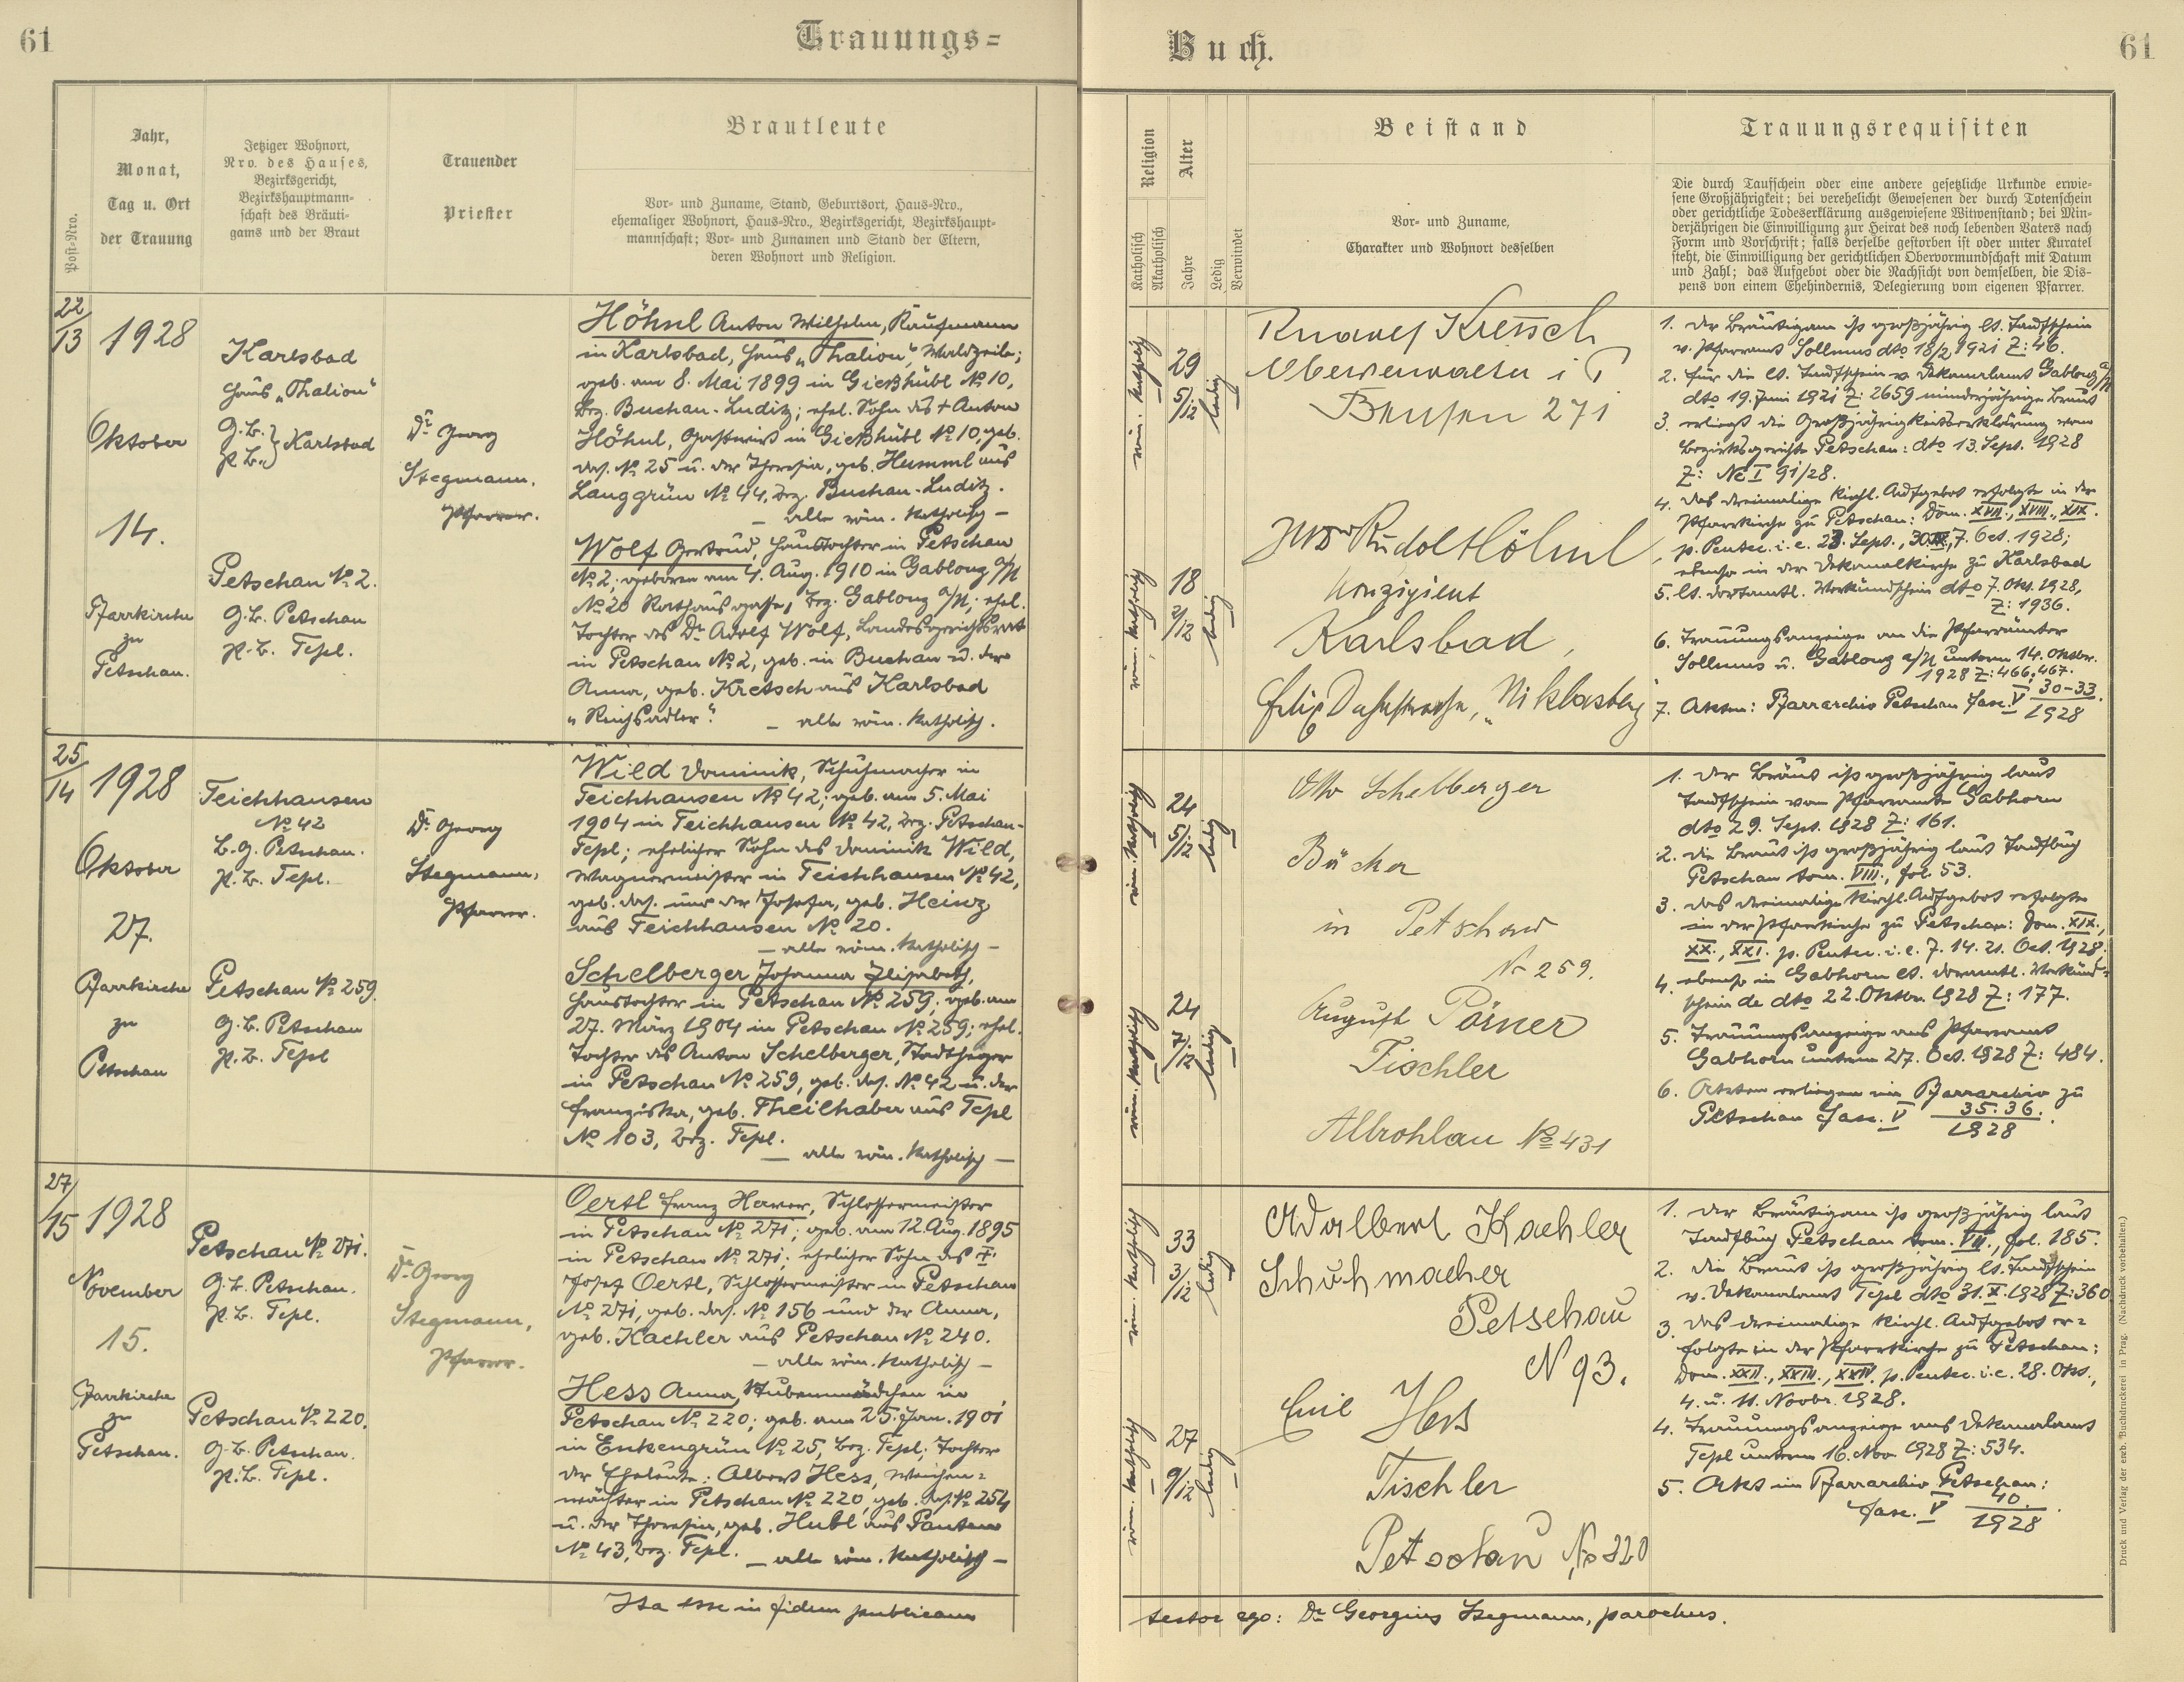 61
Trauungs=
Buch.
61
Post-Nro.
Jahr,
Monat,
Tag u. Ort
der Trauung
Jetziger Wohnort,
Nro. des Hauses,
Bezirksgericht,
Bezirkshauptmann-
schaft des Bräuti-
gams und der Braut
Trauender
Priester
Brautleute
Vor- und Zuname, Stand, Geburtsort, Haus-Nro.,
ehemaliger Wohnort, Haus-Nro., Bezirksgericht, Bezirkshaupt-
mannschaft; Vor- und Zunamen und Stand der Eltern,
deren Wohnort und Religion.
Religion
Katholisch
Akatholisch
Alter
Jahre
Ledig
Verwitwet
Beistand
Vor- und Zuname,
Charakter und Wohnort desselben
Trauungsrequisiten
Die durch Taufschein oder eine andere gesetzliche Urkunde erwie-
sene Großjährigkeit; bei verehelicht Gewesenen der durch Totenschein
oder gerichtliche Todeserklärung ausgewiesene Witwenstand; bei Min-
derjährigen die Einwilligung zur Heirat des noch lebenden Vaters nach
Form und Vorschrift; falls derselbe gestorben ist oder unter Kuratel
steht, die Einwilligung der gerichtlichen Obervormundschaft mit Datum
und Zahl; das Aufgebot oder die Nachsicht von demselben, die Dis-
pens von einem Ehehindernis, Delegierung vom eigenen Pfarrer.
22/13
1928
Oktober
14.
Pfarrkirche
zu
Petschau.
Karlsbad
Haus „Thalion"
G.B.
P.B. } Karlsbad
Petschau № 2.
G.B. Petschau
P.B. Tepl.
Dr Georg
Stegmann,
Pfarrer.
Höhnl Anton Wilhelm, Kaufmann
in Karlsbad, Haus „Thalion", Waldzeile;
geb. am 8. Mai 1899 in Gießhübl № 10,
Bez. Buchau-Luditz; ehel. Sohn des + Anton
Höhnl, Gastwirt in Gießhübl № 10, geb.
das. № 25 u. der Theresia, geb. Humml aus
Langgrün № 44, Bez. Buchau-Luditz.
— alle röm. katholisch —
Wolf Gertrud, Haustochter in Petschau
№ 2; geboren am 4. Aug. 1910 in Gablonz a/N
№ 20 Rathausgasse, Bez. Gablonz a/N; ehel.
Tochter des Dr Adolf Wolf, Landesgerichtsrat
in Petschau № 2, geb. in Buchau u. der
Anna, geb. Kretsch aus Karlsbad
„Reichsadler". — alle röm. katholisch.
röm. katholisch
29
5/12
ledig
röm. katholisch
18
2/12
ledig
Rudolf Kretsch
Oberverwalter i P
Bensen 271
Rudolf Höhnl
Konzipient
Karlsbad,
Felix Dahnstrasse, „Niklasberg"
1. Der Bräutigam ist großjährig lt. Taufschein
v. Pfarramt Sollmus dto 18/2 1921 Z: 46.
2. Für die lt. Taufschein v. Dekanalamt Gablonz a/N
dto 19. Juni 1921 Z: 2659 minderjährige Braut
3. erliegt die Großjährigkeitserklärung vom
Bezirksgerichte Petschau: dto 13. Sept. 1928
Z: Nc I 91/28.
4. Das dreimalige kirchl. Aufgebot erfolgte in der
Pfarrkirche zu Petschau: Dom. XVII., XVIII., XIX.
p. Pentec. i. e. 23. Sept., 30. IX., 7. Oct. 1928;
ebenso in der Dekanalkirche zu Karlsbad
5. lt. dortamtl. Verkündschein dto 7. Okt. 1928,
Z: 1936.
6. Trauungsanzeige an die Pfarrämter
Sollmus u. Gablonz a/N unterm 14. Oktbr.
1928 Z: 466, 467.
7. Akten: Pfarrarchiv Petschau Fasc. V 30-33/1928
25/14
1928
Oktober
27.
Pfarrkirche
zu
Petschau
Teichhausen
№ 42
B.G. Petschau.
P.B. Tepl.
Petschau № 259
G.B. Petschau
P.B. Tepl
Dr Georg
Stegmann,
Pfarrer.
Wild Dominik, Schuhmacher in
Teichhausen № 42; geb. am 5. Mai
1904 in Teichhausen № 42, Bez. Petschau-
Tepl; ehelicher Sohn des Dominik Wild,
Wagnermeister in Teichhausen № 42,
geb. das. und der Josefa, geb. Heinz
aus Teichhausen № 20.
— alle röm. katholisch —
Schelberger Johanna Elisabeth,
Haustochter in Petschau № 259; geb. am
27. März 1904 in Petschau № 259; ehel.
Tochter des Anton Schelberger, Stadtheger
in Petschau № 259, geb. das. № 42 u. der
Franziska, geb. Theilhaber aus Tepl
№ 103, Bez. Tepl.
— alle röm. katholisch —
röm. katholisch
24
5/12
ledig
röm. katholisch
24
7/12
ledig
Otto Schelberger
Bäcker
in Petschau
Nr 259.
August Pörner
Tischler
Altrohlau № 431
1. Der Bräut. ist großjährig laut
Taufschein vom Pfarramte Gabhorn
dto 29. Sept. 1928 Z: 161.
2. die Braut ist großjährig laut Taufbuch
Petschau tom. VIII., fol. 53.
3. das dreimalige kirchl. Aufgebot erfolgte
in der Pfarrkirche zu Petschau: Dom. XIX.,
XX., XXI. p. Pentec. i. e. 7. 14. 21. Oct. 1928;
4. ebenso in Gabhorn lt. doramtl. Verkünd=
schein de dto 22. Oktbr. 1928 Z: 177.
5. Trauungsanzeige ans Pfarramt
Gabhorn unterm 27. Oct. 1928 Z: 484.
6. Akten erliegen im Pfarrarchiv zu
Petschau Fasc. V 35. 36./1928.
27/15
1928
November
15.
Pfarrkirche
zu
Petschau.
Petschau № 271.
G.B. Petschau.
P.B. Tepl.
Petschau № 220.
G.B. Petschau.
P.B. Tepl.
Dr Georg
Stegmann,
Pfarrer.
Oertl Franz Xaver, Schlossermeister
in Petschau № 271; geb. am 12. Aug. 1895
in Petschau № 271; ehelicher Sohn des +
Josef Oertl, Schlossermeister in Petschau
№ 271, geb. das. № 156 und der Anna,
geb. Kaehler aus Petschau № 240.
— alle röm. katholisch —
Hess Anna, Stubenmädchen in
Petschau № 220; geb. am 25. Jan. 1901
in Enkengrün № 25, Bez. Tepl; Tochter
der Eheleute: Albert Hess, Weichen=
wächter in Petschau № 220, geb. das. № 254
u. der Theresia, geb. Hubl aus
№ 43, Bez. Tepl. — alle röm. katholisch —
röm. katholisch
33
3/12
ledig
röm. katholisch
27
9/12
ledig
Adalbert Kaehler
Schuhmacher
Petschau
N 93.
Emil Hess
Tischler
Petschau No 220
1. Der Bräutigam ist großjährig laut
Taufbuch Petschau tom. VII., fol. 185.
2. die Braut ist großjährig lt. Taufschein
v. Dekanalamt Tepl dto 31. X. 1928 Z: 360
3. Das dreimalige kirchl. Aufgebot er=
folgte in der Pfarrkirche zu Petschau:
Dom. XXII., XXIII., XXIV. p. Pentec. i. e. 28. Okt.,
4. u. 11. Novbr. 1928.
4. Trauungsanzeige ans Dekanalamt
Tepl unterm 16. Nov. 1928 Z: 534.
5. Akt im Pfarrarchiv Petschau:
Fasc. V 40./1928.
Ita esse in fidem publicam
testor ego: Dr Georgius Stegmann, parochus.
Druck und Verlag der erzb. Buchdruckerei in Prag. (Nachdruck vorbehalten.)